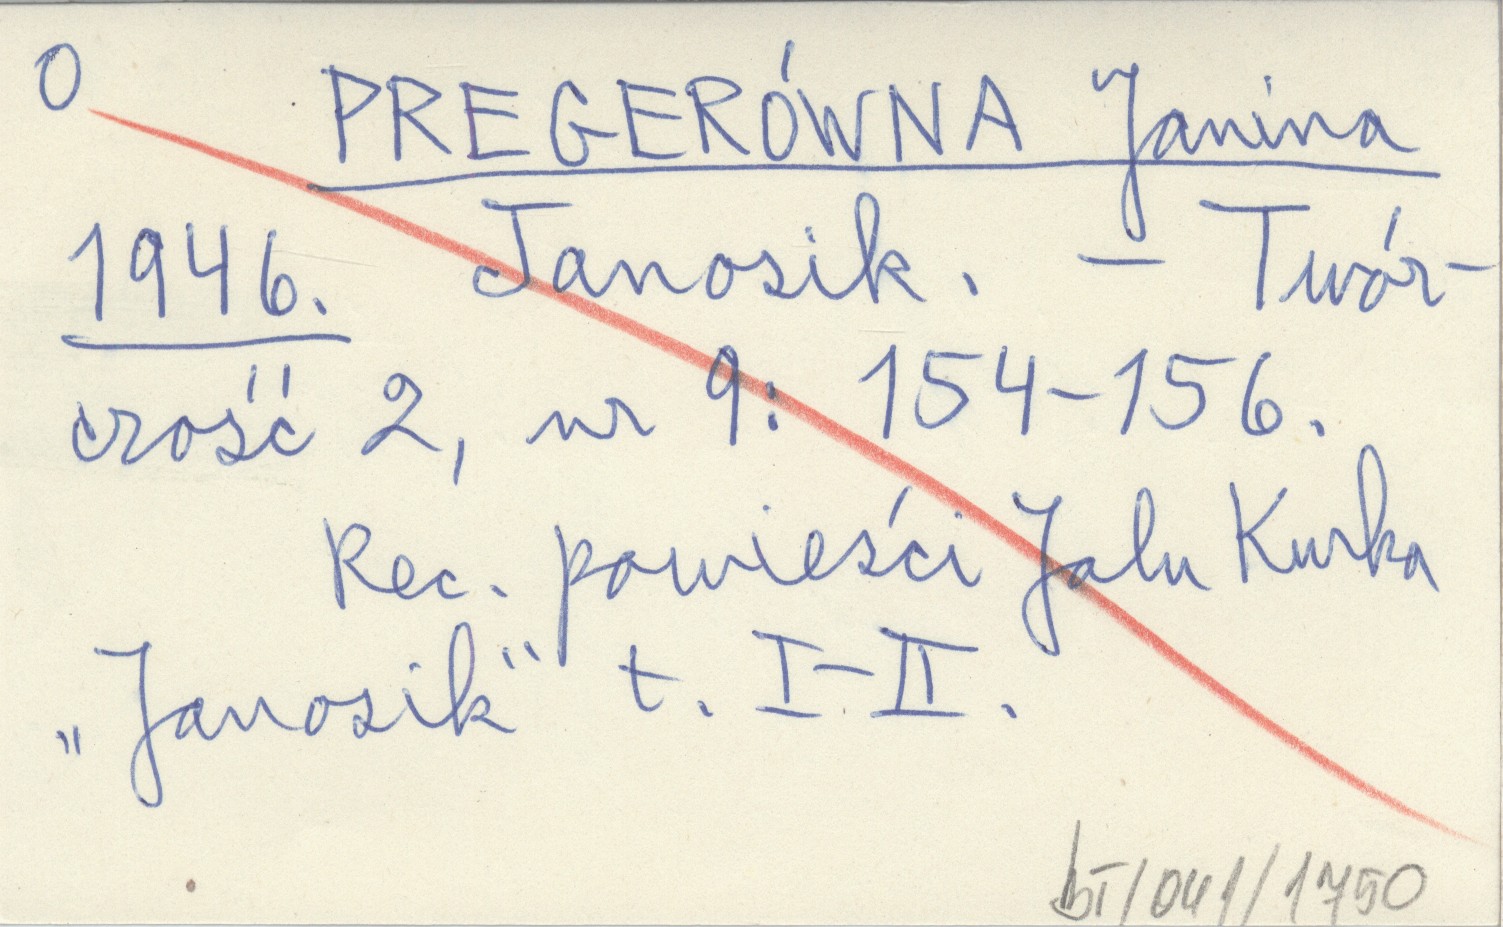 O PREGERÓWNA Janina
1946. Janosik. – Twór-
czość 2, nr 9: 154-156.
Rec. powieści Jalu Kurka
„Janosik“ t. I-II.
bT/041/1750